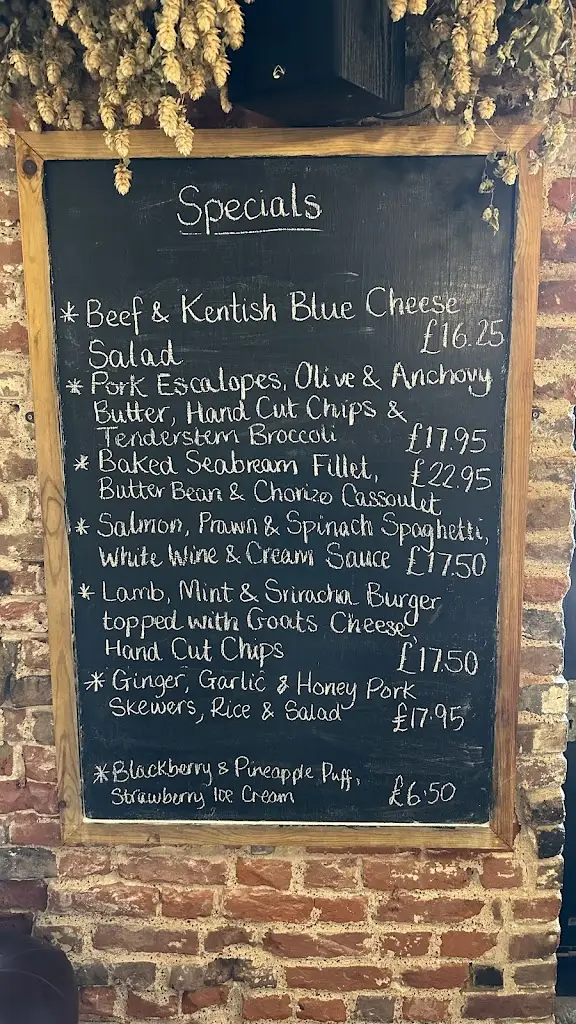 Specials
* Beef & Kentish Blue Cheese
Salad £16.25
* Pork Escalopes, Olive & Anchovy
Butter, Hand Cut Chips &
Tenderstem Broccoli £17.95
* Baked Seabream Fillet, £22.95
Butter Bean & Chorizo Cassoulet
* Salmon, Prawn & Spinach Spaghetti,
White Wine & Cream Sauce £17.50
* Lamb, Mint & Sriracha Burger
topped with Goats Cheese,
Hand Cut Chips £17.50
* Ginger, Garlic & Honey Pork
Skewers, Rice & Salad £17.95
* Blackberry & Pineapple Puff,
Strawberry Ice Cream £6.50